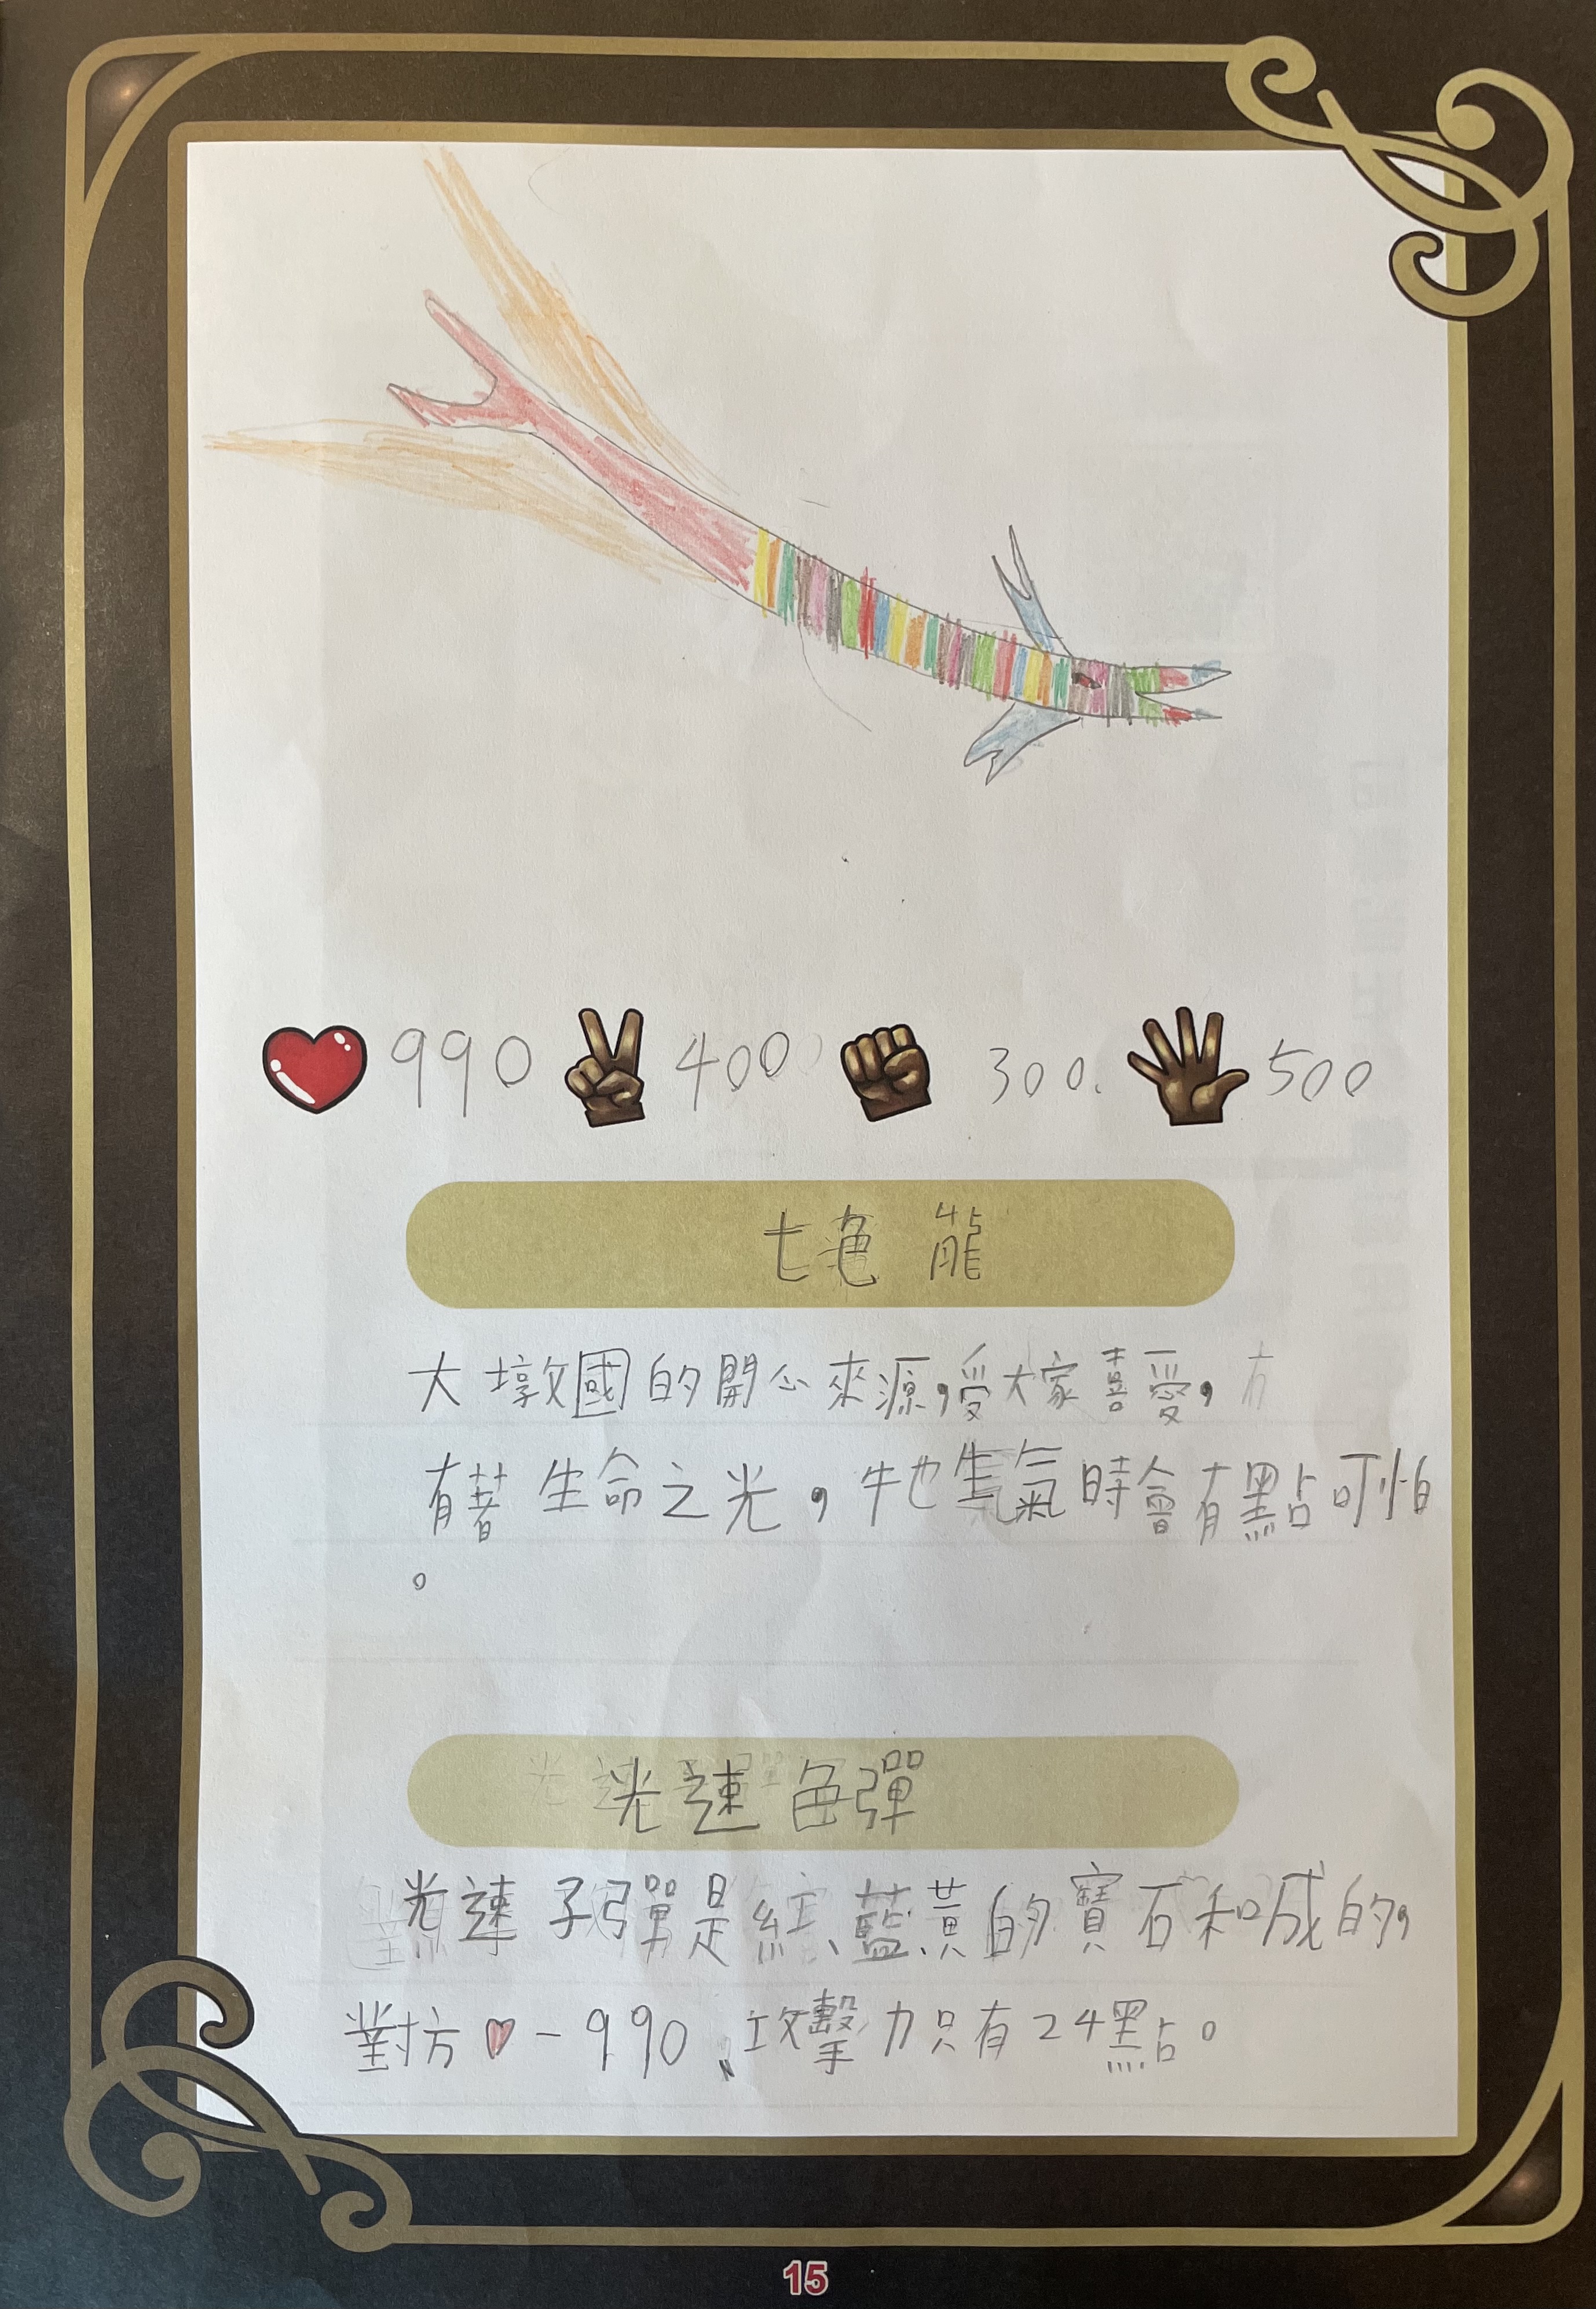 990 400 300. 500
七色龍
大墩國的開心來源，受大家喜愛，
有著生命之光，牠生氣時會有點可怕
。
光速色彈
光速子彈是紅、藍、黃的寶石和成的，
對方♥-990、攻擊力只有24點。
15